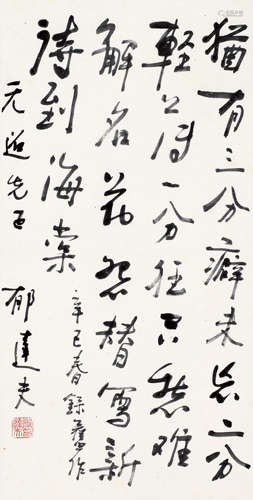 猶有三分癖未忘二分
輕薄一分狂只愁難
解名花怨替寫新
詩到海棠
辛巳春錄舊作
先正
郁達夫